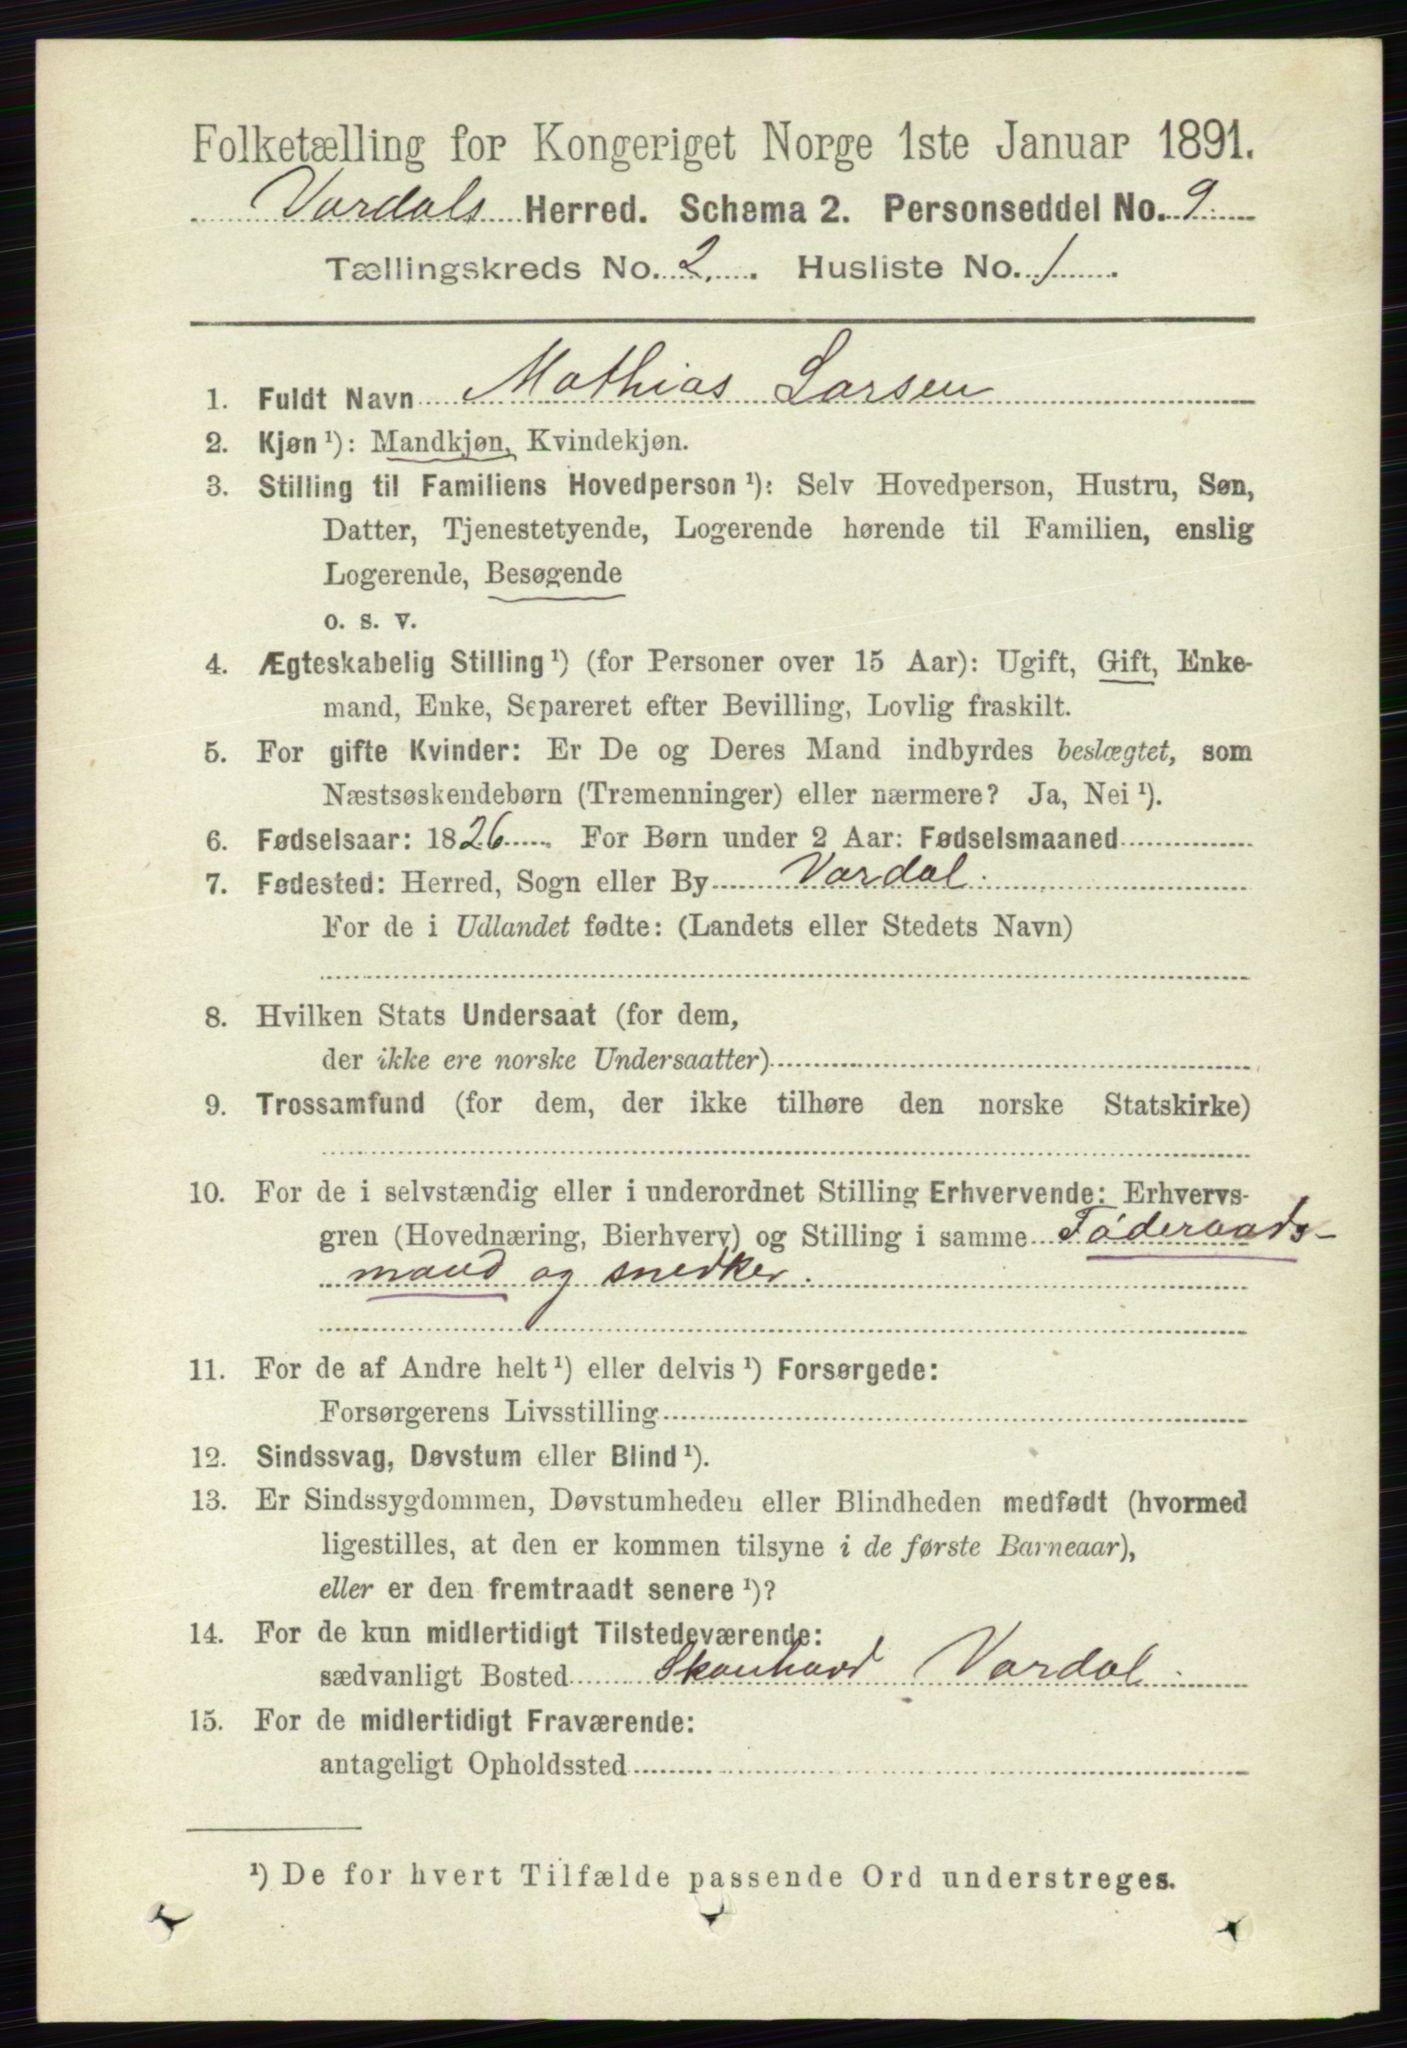 Folketælling for Kongeriget Norge 1ste Januar 1891.
Vardals Herred. Schema 2. Personseddel No. 9
Tællingskreds No. 2. Husliste No. 1
1. Fuldt Navn Mathias Larsen
2. Kjøn ¹): Mandkjøn, Kvindekjøn.
3. Stilling til Familiens Hovedperson ¹): Selv Hovedperson, Hustru, Søn,
Datter, Tjenestetyende, Logerende hørende til Familien, enslig
Logerende, Besøgende
o. s. v.
4. Ægteskabelig Stilling ¹) (for Personer over 15 Aar): Ugift, Gift, Enke-
mand, Enke, Separeret efter Bevilling, Lovlig fraskilt.
5. For gifte Kvinder: Er De og Deres Mand indbyrdes beslægtet, som
Næstsøskendebørn (Tremenninger) eller nærmere? Ja, Nei ¹).
6. Fødselsaar: 1826. For Børn under 2 Aar: Fødselsmaaned
7. Fødested: Herred, Sogn eller By Vardal.
For de i Udlandet fødte: (Landets eller Stedets Navn)
8. Hvilken Stats Undersaat (for dem,
der ikke ere norske Undersaatter)
9. Trossamfund (for dem, der ikke tilhøre den norske Statskirke)
10. For de i selvstændig eller i underordnet Stilling Erhvervende: Erhvervs-
gren (Hovednæring, Bierhverv) og Stilling i samme Føderaads-
mand og snedker.
11. For de af Andre helt ¹) eller delvis ¹) Forsørgede:
Forsørgerens Livsstilling
12. Sindssvag, Døvstum eller Blind ¹).
13. Er Sindssygdommen, Døvstumheden eller Blindheden medfødt (hvormed
ligestilles, at den er kommen tilsyne i de første Barneaar),
eller er den fremtraadt senere ¹)?
14. For de kun midlertidigt Tilstedeværende:
sædvanligt Bosted Vardal.
15. For de midlertidigt Fraværende:
antageligt Opholdssted
¹) De for hvert Tilfælde passende Ord understreges.